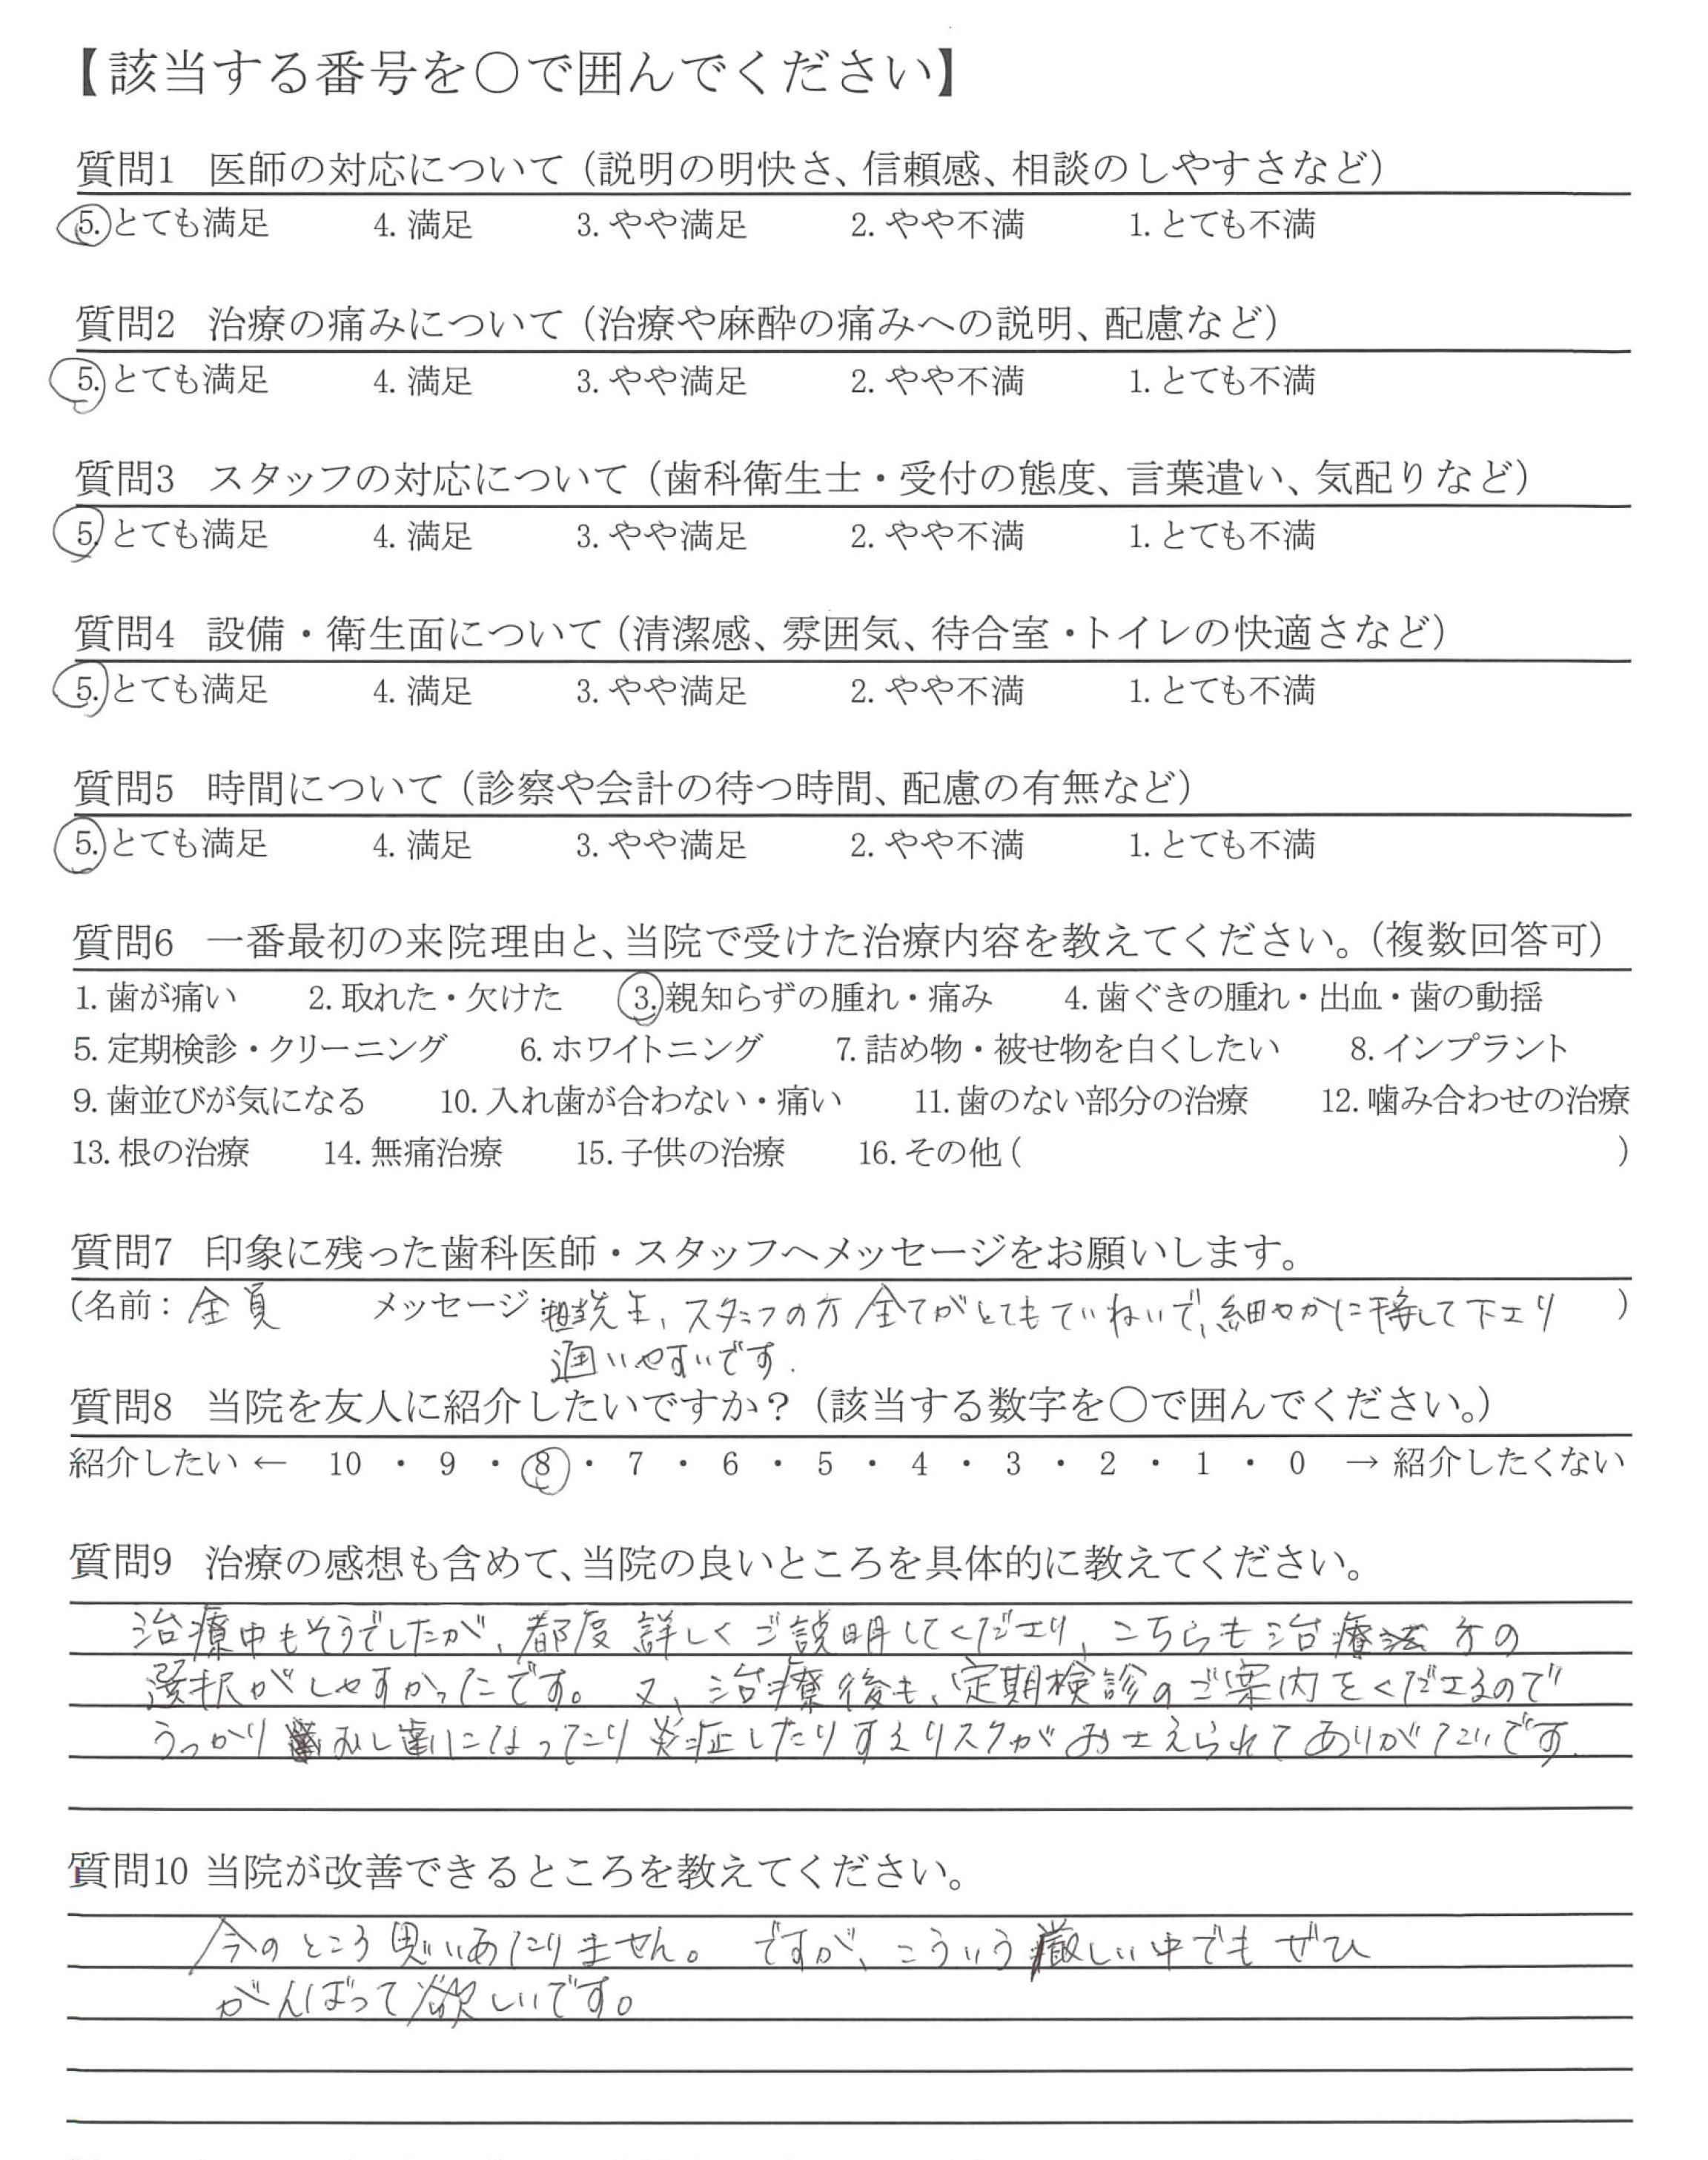 【該当する番号を○で囲んでください】
質問1 医師の対応について（説明の明快さ、信頼感、相談のしやすさなど）
5.とても満足 4.満足 3.やや満足 2.やや不満 1.とても不満
質問2 治療の痛みについて（治療や麻酔の痛みへの説明、配慮など）
5.とても満足 4.満足 3.やや満足 2.やや不満 1.とても不満
質問3 スタッフの対応について（歯科衛生士・受付の態度、言葉遣い、気配りなど）
5.とても満足 4.満足 3.やや満足 2.やや不満 1.とても不満
質問4 設備・衛生面について（清潔感、雰囲気、待合室・トイレの快適さなど）
5.とても満足 4.満足 3.やや満足 2.やや不満 1.とても不満
質問5 時間について（診察や会計の待つ時間、配慮の有無など）
5.とても満足 4.満足 3.やや満足 2.やや不満 1.とても不満
質問6 一番最初の来院理由と、当院で受けた治療内容を教えてください。（複数回答可）
1.歯が痛い 2.取れた・欠けた 3.親知らずの腫れ・痛み 4.歯ぐきの腫れ・出血・歯の動揺
5.定期検診・クリーニング 6.ホワイトニング 7.詰め物・被せ物を白くしたい 8.インプラント
9.歯並びが気になる 10.入れ歯が合わない・痛い 11.歯のない部分の治療 12.噛み合わせの治療
13.根の治療 14.無痛治療 15.子供の治療 16.その他( )
質問7 印象に残った歯科医師・スタッフへメッセージをお願いします。
(名前：全員 メッセージ：担当先生、スタッフの方全てがとてもていねいで、細やかに接して下さり )
通いやすいです.
質問8 当院を友人に紹介したいですか？（該当する数字を○で囲んでください。）
紹介したい ← 10 ・ 9 ・ 8 ・ 7 ・ 6 ・ 5 ・ 4 ・ 3 ・ 2 ・ 1 ・ 0 → 紹介したくない
質問9 治療の感想も含めて、当院の良いところを具体的に教えてください。
治療中もそうでしたが、都度詳しくご説明してくださり、こちらも治療法の
選択がしやすかったです。又、治療後も、定期検診のご案内をくださるので
うっかり になってたり炎症したりするリスクがおさえられてありがたいです.
質問10 当院が改善できるところを教えてください。
今のところ思いあたりません。ですが、こういう厳しい中でもぜひ
がんばって欲しいです。